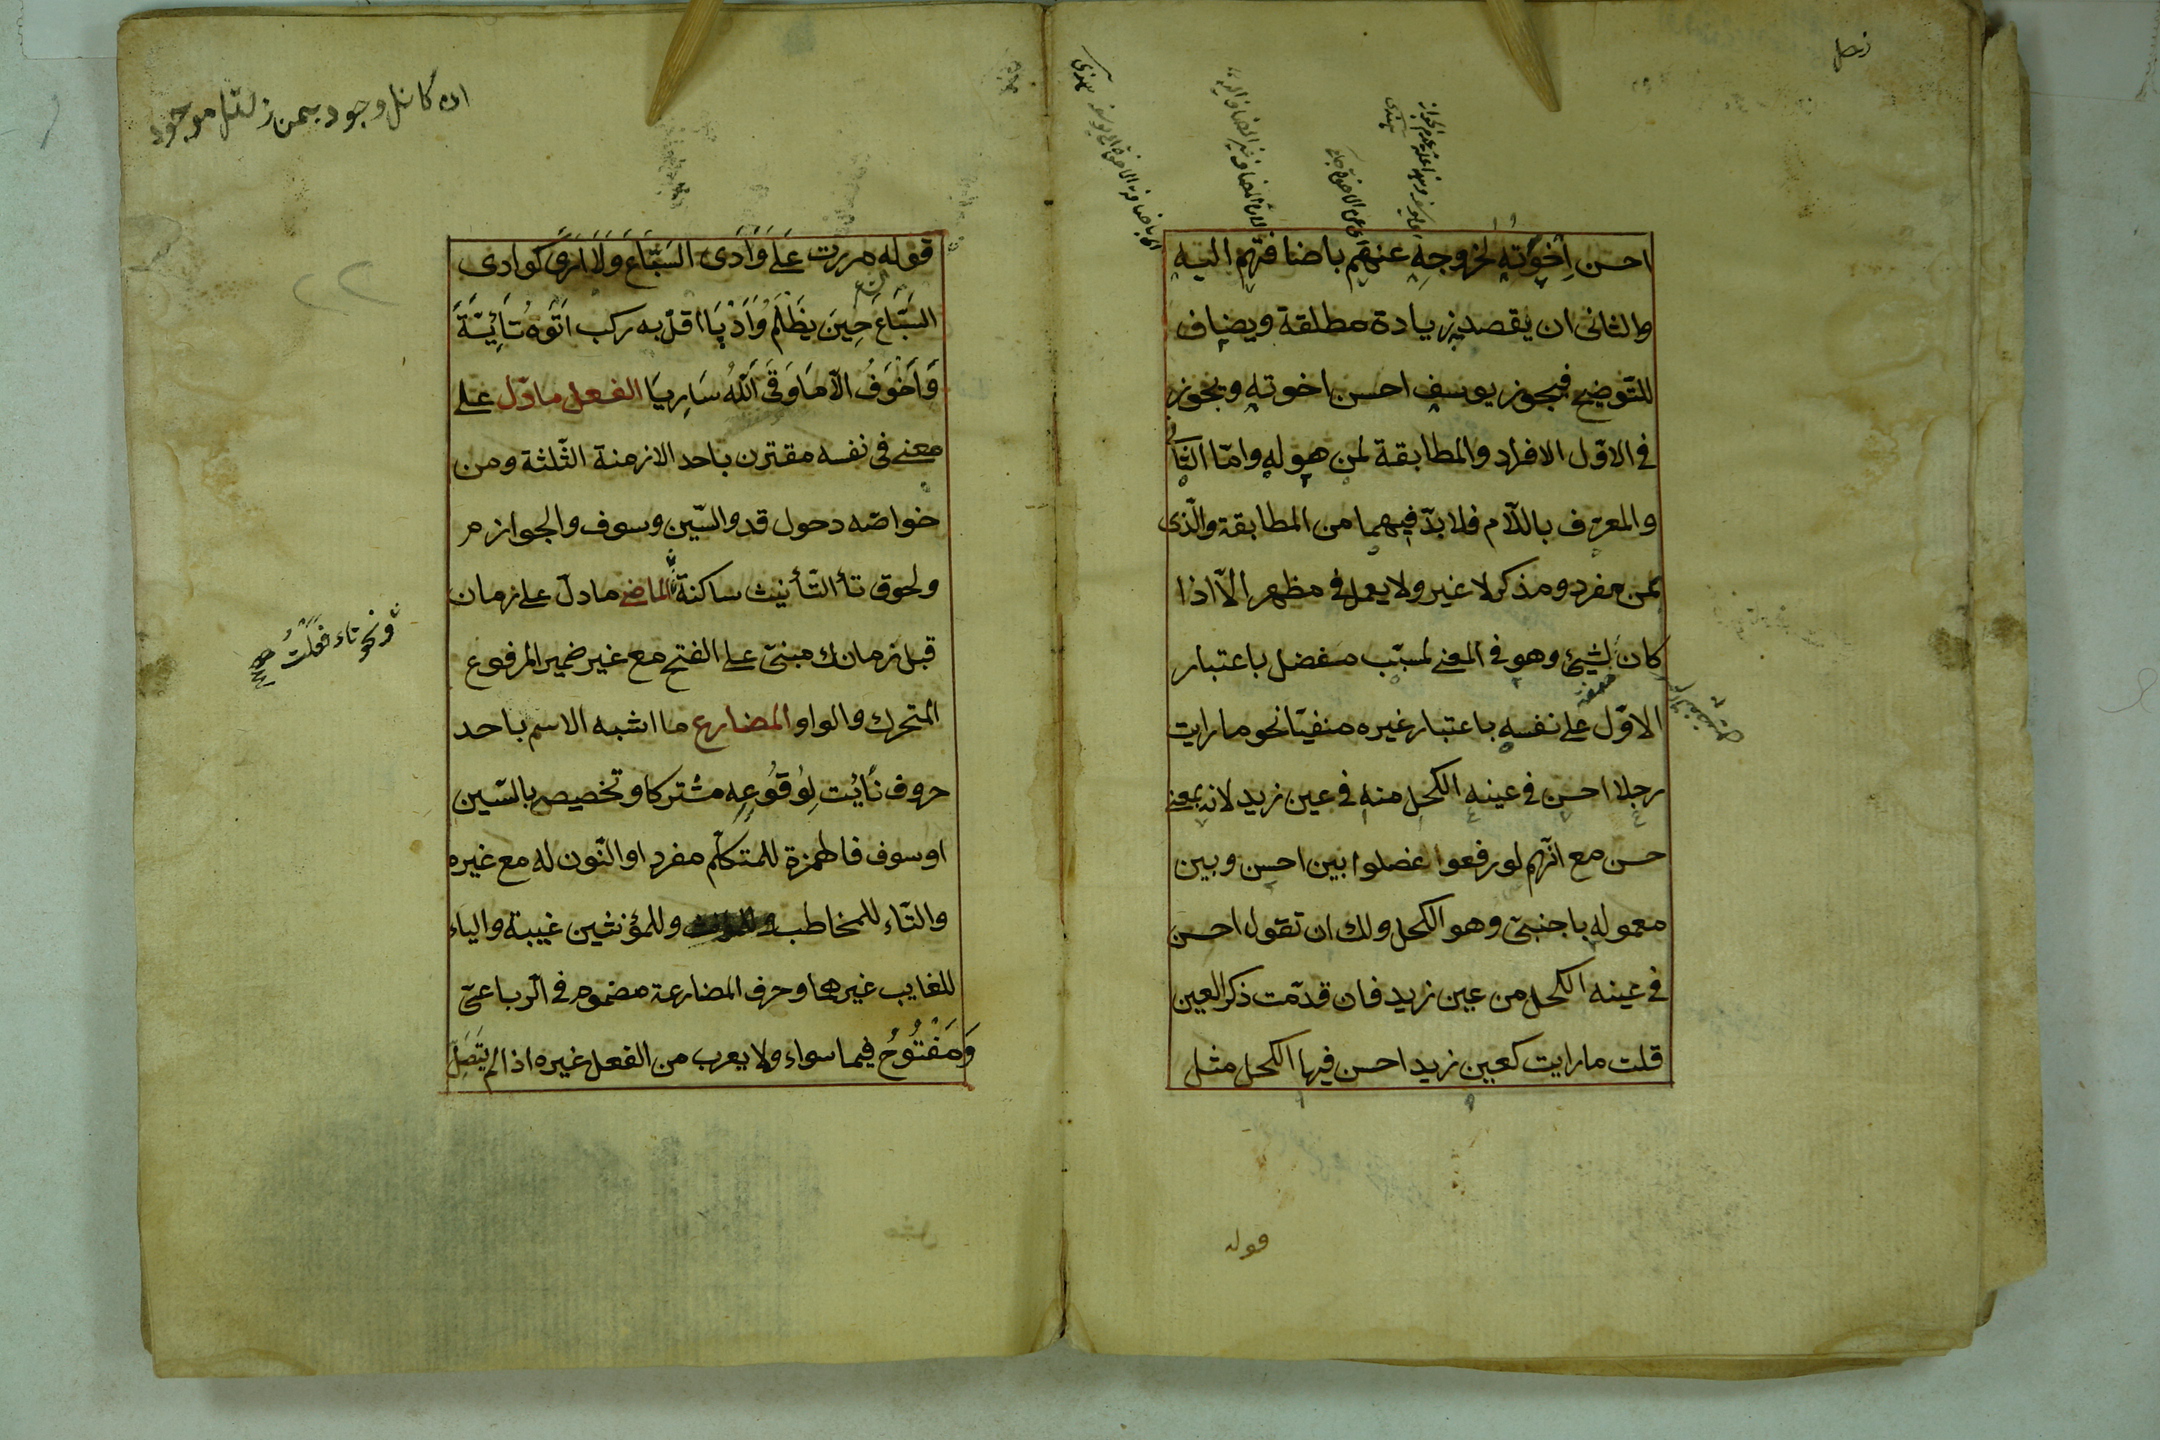 احسن اِخْوَتِه لخروجِه عنهم باضافتهم اليه
والثانى ان يقصد به زيادة مطلقة ويضاف
للتّوضيح فيجوز يوسف احسن اخوته ويجوز
فى الاوّل الافراد والمطابقة لمن هو له وامّا الثّانى
والمعرّف باللّام فلا بدّ فيهما من المطابقة والّذى
بمن مفرد ومذكر لا غير ولا يعمل فى مظهر الّا اذا
كان لشيئ وهو فى المعنى لمسبّب مفضل باعتبار
الاوّل على نفسه باعتبار غيره منفيّا نحو ما رايت
رجلا احسن فى عينه الكحل منه فى عين زيد لانه بمعنى
حسن مع انّهم لو رفعوا غصلوا بين احسن وبين
معموله باجنبىّ وهو الكحل ولك ان تقول احسن
فى عينه الكحل من عين زيد فان قدّمت ذكر العين
قلت ما رايت كعين زيد احسن فيها الكحل مثل
قوله
قوله مررت عَلَى وَادَى السَّبَاعَ وَلَا اَرَى كوادى
السَّبَاعَ حِينَ يظْلَمُ وَادَيًا اقلّ به ركب اتَوْهُ تَأيَّةً
وَاَخْوَفُ الّا مَا وَقَى اَللّهُ سَارِيَا الفعل ما دّل على
معنى فى نفسه مقترن باحد الازمنة الثّلثة ومن
خواصّه دحول قد والسّين وسوف والجوازم
ولحوق تأ التّأنيث ساكنة الماضى ما دلّ على زمان
قبل زمانك مبنىّ على الفتح مع غير ضمير المرفوع
المتحرك والواو المضارع ما اشبه الاسم باحد
حروف نَأيْت لِوُقُوعِهِ مشتركا وتخصيصه بالسّين
او سوف فالهمزة للمتكلّم مفرد او النّون له مع غيره
والتّاء للمخاطب وللمؤنثين غيبة والياء
للغايب غيرهما وحرف المضارعة مضموم فى الّرباعىّ
وَمَفْتُوحُ فيما سواء ولا يعرب من الفعل غيره اذا لم يَتَصِل
ونحو تاء فعلت صح